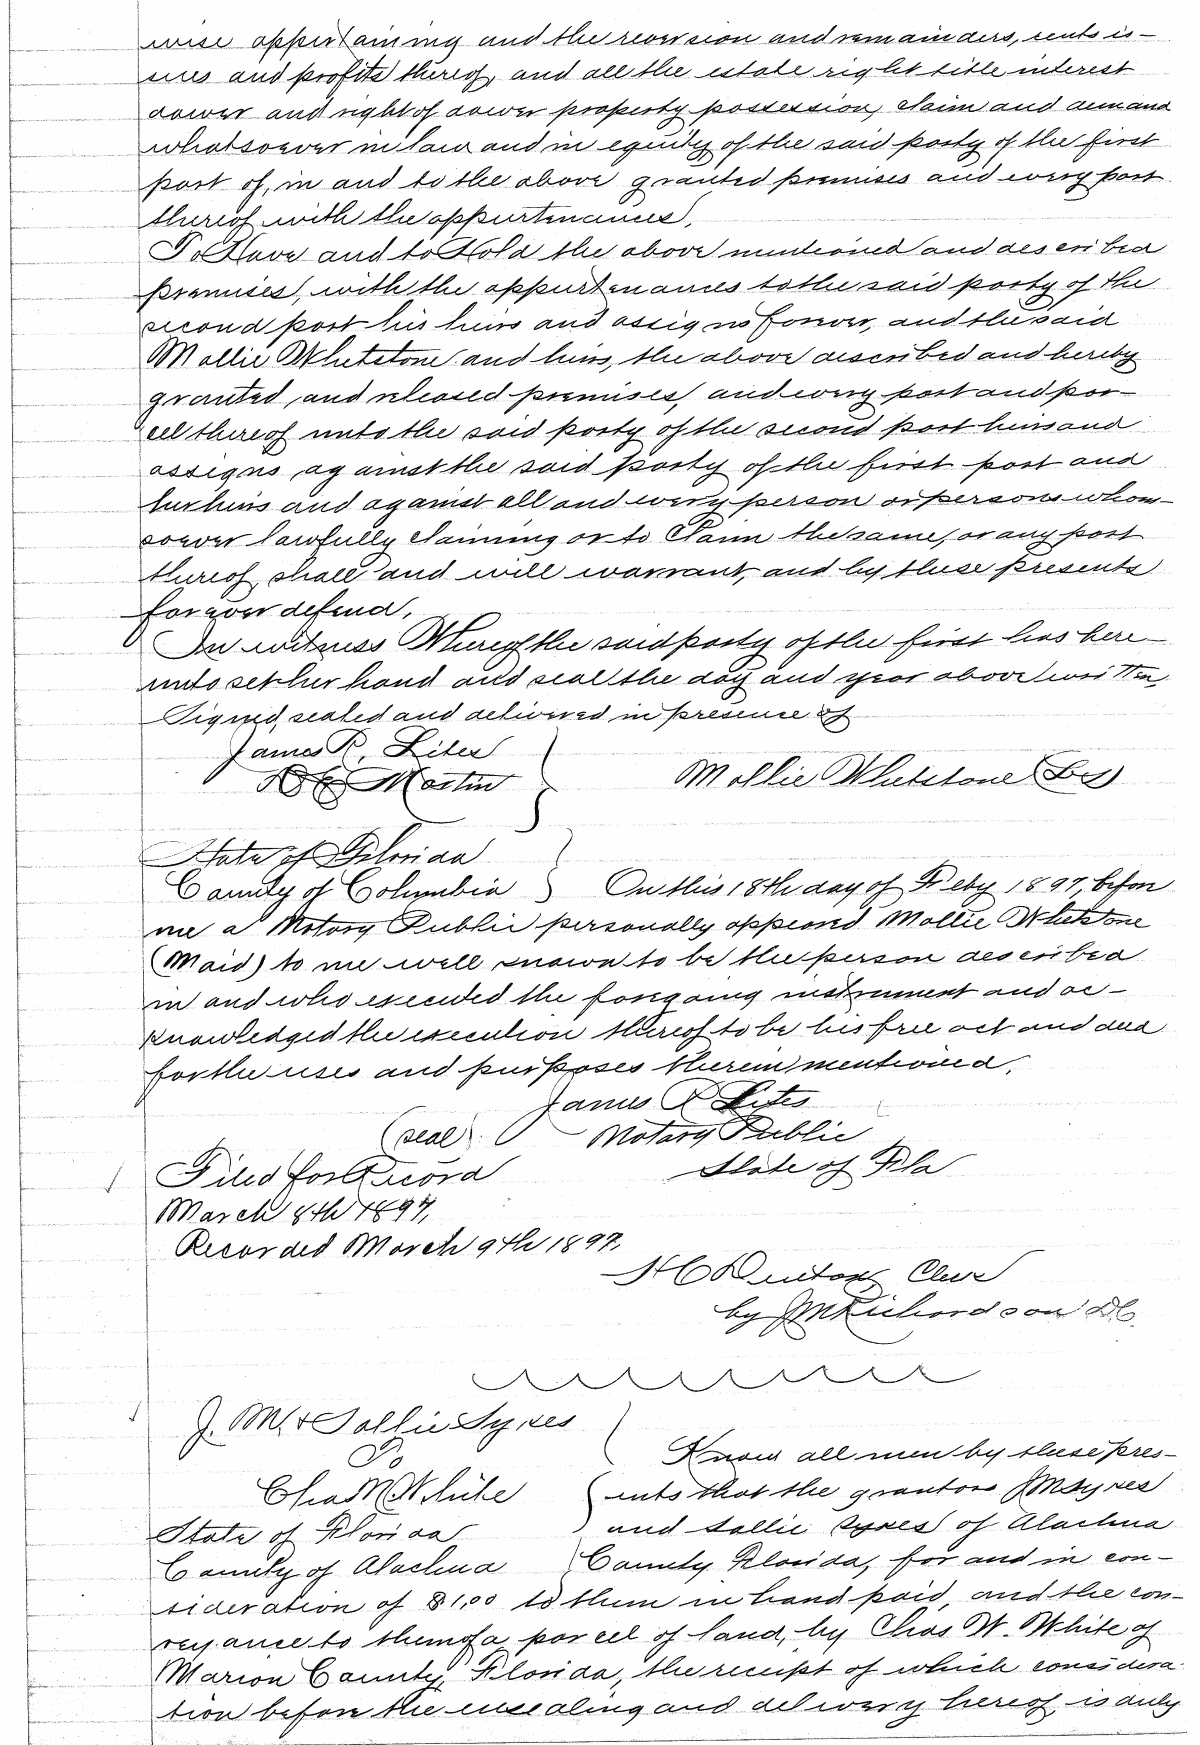 wise appertaining and the reversion and remainders, rents is-
sues and profits thereof, and all the estate right title interest
dower and right of dower property possession, claim and demand
whatsoever in law and in equity of the said party of the first
part of, in and to the above granted premises and every part
thereof with the appurtenances.
To Have and to Hold the above mentioned and described
premises, with the appurtenances to the said party of the
second part his heirs and assigns forever, and the said
Mollie Whetstone and heirs, the above described and hereby
granted, and released premises, and every part and par-
cel thereof unto the said party of the second part heirs and
assigns against the said party of the first part and
her heirs and against all and every person or persons whom-
soever lawfully claiming or to Claim the same, or any part
thereof shall and will warrant, and by these presents
forever defend.
In witness Whereof the said party of the first has here-
unto set her hand and seal the day and year above written
Signed, sealed and delivered in presence of
James R. Liles
Martin
Mollie Whetstone (LS)
State of Florida
County of Columbia } On this 18th day of Feby 1897, before
me a Notary Public personally appeared Mollie Whetstone
(Maid) to me well known to be the person described
in and who executed the foregoing instrument and ac-
knowledged the execution thereof to be his free act and deed
for the uses and purposes therein mentioned.
James R Liles
(seal) Notary Public
State of Fla
Filed for Record
March 8th 1897,
Recorded March 9th 1897.
H C Denton, Clerk
by J M Richardson DC
J. M. & Sallie Sykes
To
Chas W White
State of Florida
County of Alachua
Know all men by these pres-
ents that the grantors J M Sykes
and Sallie Sykes of Alachua
County Florida, for and in con-
sideration of $1.00 to them in hand paid, and the con-
veyance to them of a parcel of land, by Chas W. White of
Marion County, Florida, the receipt of which considera-
tion before the ensealing and delivery hereof is duly